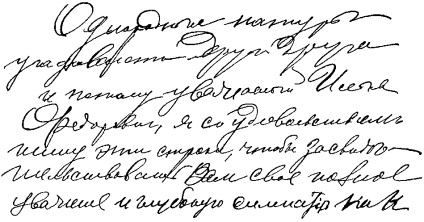 Однородные натуры
угадывают друг друга
и потому уважаемый Илья
Федорович, я с удовольствием
пишу эти строки, чтобы засвидет
тельствовать Вам свое полное
уважение и глубокую симпатию как